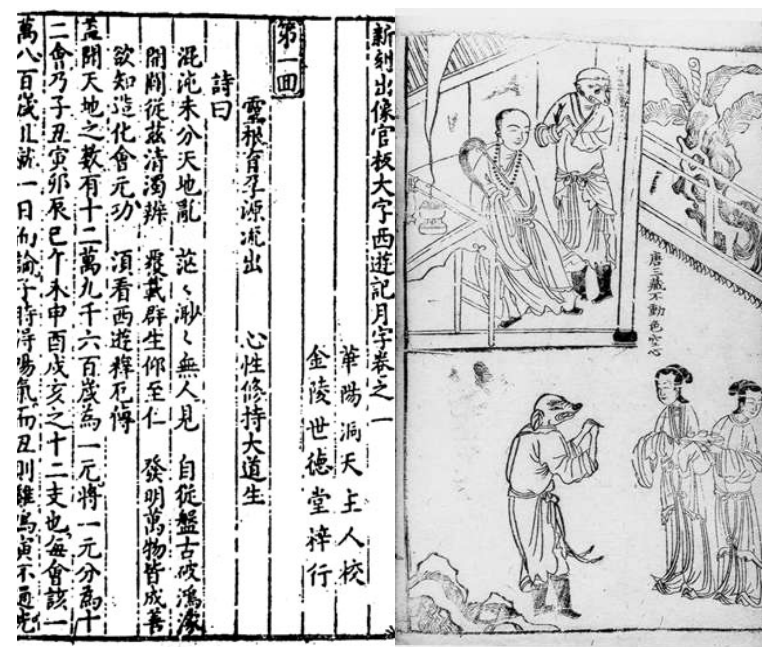 唐三藏不動色空心
新刻出像官板大字西遊記月字卷之一
華陽洞天主人校
金陵世德堂梓行
第一回
靈根育孕源流出 心性修持大道生
詩曰
混沌未分天地亂 茫〻渺〻無人見 自從盤古破鴻濛
開闢從兹清濁辨 覆載群生仰至仁 發明萬物皆成善
欲知造化會元功 須看西遊釋厄傳
蓋聞天地之數有十二萬九千六百歲為一元將一元分為十
二會乃子丑寅卯辰巳午未申酉戌亥之十二支也每會該一
萬八百歲且就一日而論子時得陽氣而丑則雞鳴寅不通光